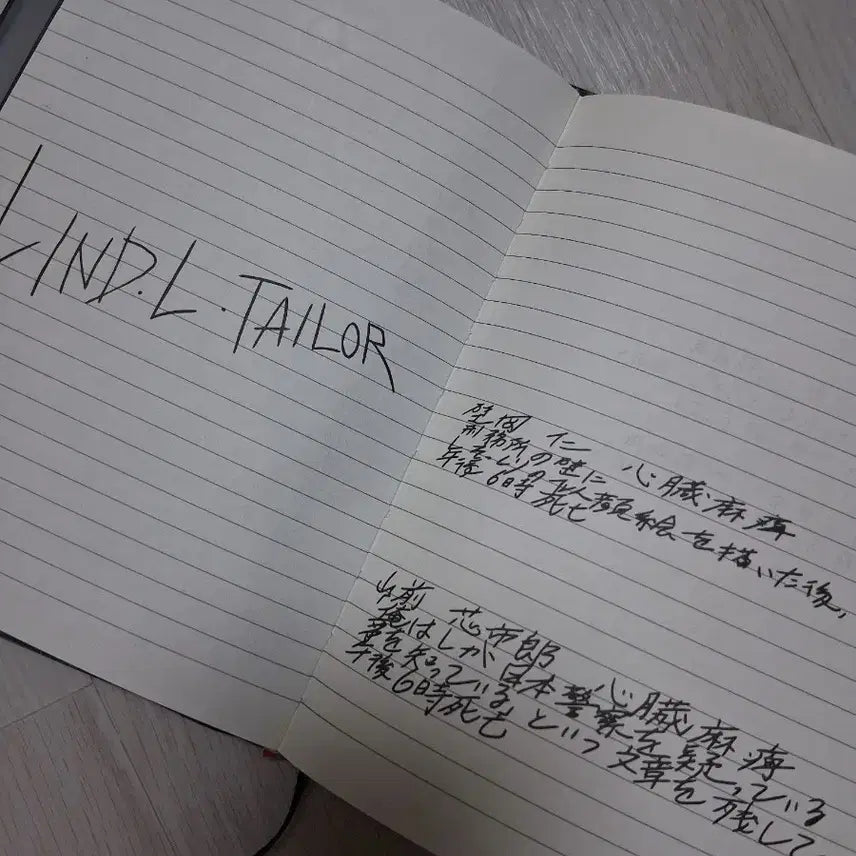 LIND.L.TAILOR
仁 心臓麻痺
刑務所の壁に
似顔絵を描いた後,
午後6時死亡
山前 芯市郎 心臓麻痺
俺はLが日本警察を疑っている
事を知っている という文章を残して
午後6時死亡